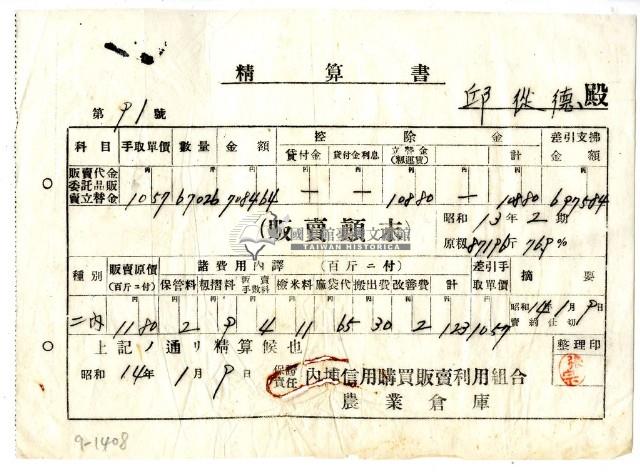 精算書
邱從德殿
第91號
科目 手取單價 數量 金額 控除金 差引支拂金額
貸付金 貸付金利息 立替金(籾運賃) 計
販賣代金
委託品販
賣立替金 1057 67026 708464 — — 10880 10880 697584
(販賣顚末)
昭和13年2期
原籾87195斤 769%
種別 販賣原價(百斤ニ付) 諸費用內譯(百斤ニ付) 差引手取單價 摘要
保管料 籾摺料 販賣手數料 檢米料 麻袋代 搬出費 改善費 計
二內 1180 2 9 4 11 65 30 2 123 1057
昭和14年1月9日
賣綱仕切
上記ノ通リ精算候也
整理印
昭和14年1月9日
保證責任 內埔信用購買販賣利用組合
農業倉庫
9-1408
國史館臺灣文獻館
TAIWAN HISTORICA